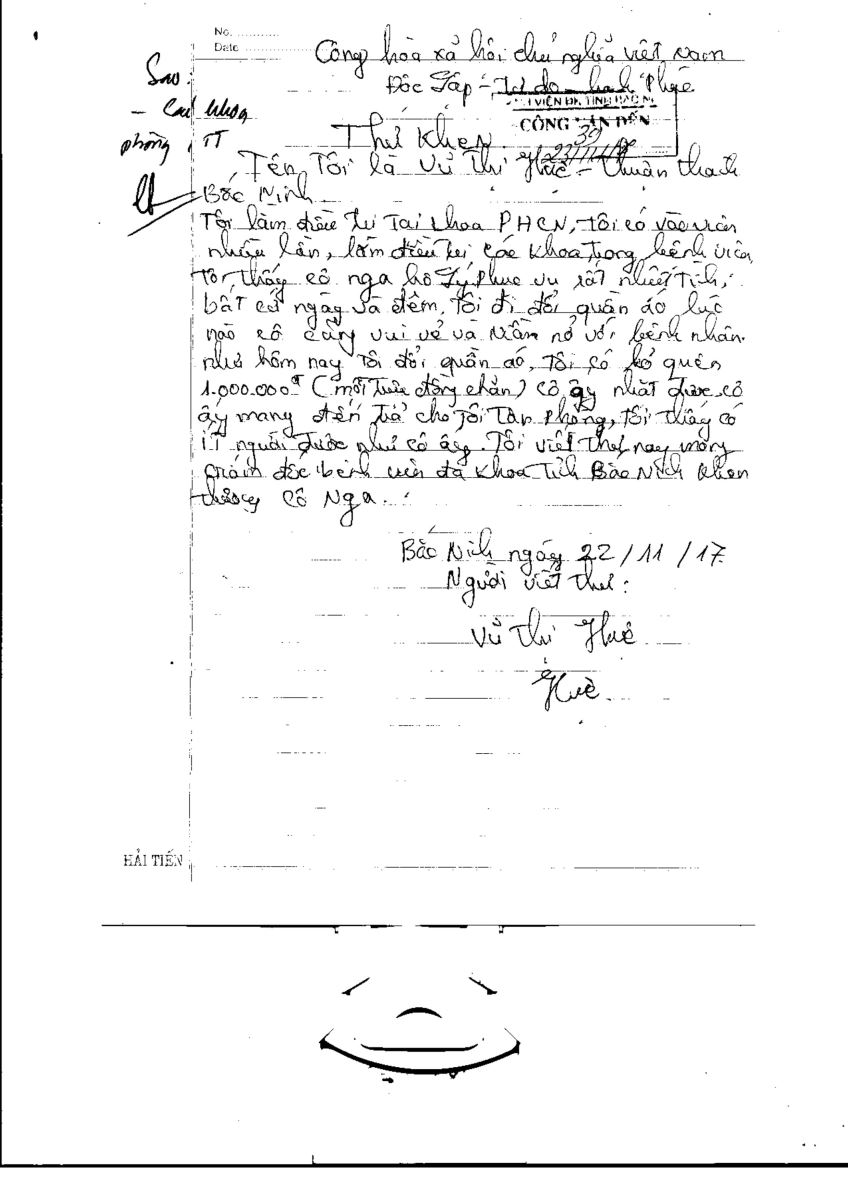 No. ............
Date ..................
Công hòa xả hôi chủ nghĩa việt nam
Đôc Lâp - Tự do - hanh Phúc
Sao:
- Các khoa
phòng, TT
VIỆN ĐK TỈNH BẮC N
CÔNG VĂN ĐẾN
39
23/11/
Thư Khen
Tên Tôi là Vủ Thị Huê - thuân thanh
Bắc Ninh
Tôi làm điều tri tai khoa PHCN, tôi có vào viên
nhiều lần, làm điều tri các khoa trong bệnh viên,
Tôi thấy cô nga hô lý phuc vu rất nhiệt tình,
bất cứ ngày và đêm, tôi đi đổi quần áo lúc
nào cô củng vui vẻ và niềm nở với bệnh nhân.
như hôm nay tôi đổi quần aó, tôi có bỏ quên
1.000.000đ (môt triệu đồng chẳn) cô ây nhăt được cô
ây mang đến trả cho tôi tân phòng, tôi thấy có
ít người được như cô ây. Tôi viết thư nay mong
giám đốc bệnh viên đa khoa tỉnh Băc Ninh khen
thưởng cô Nga.
Bắc Ninh ngày 22/11/17
Người viết thư:
Vủ Thi Huê
Huê
HẢI TIẾN